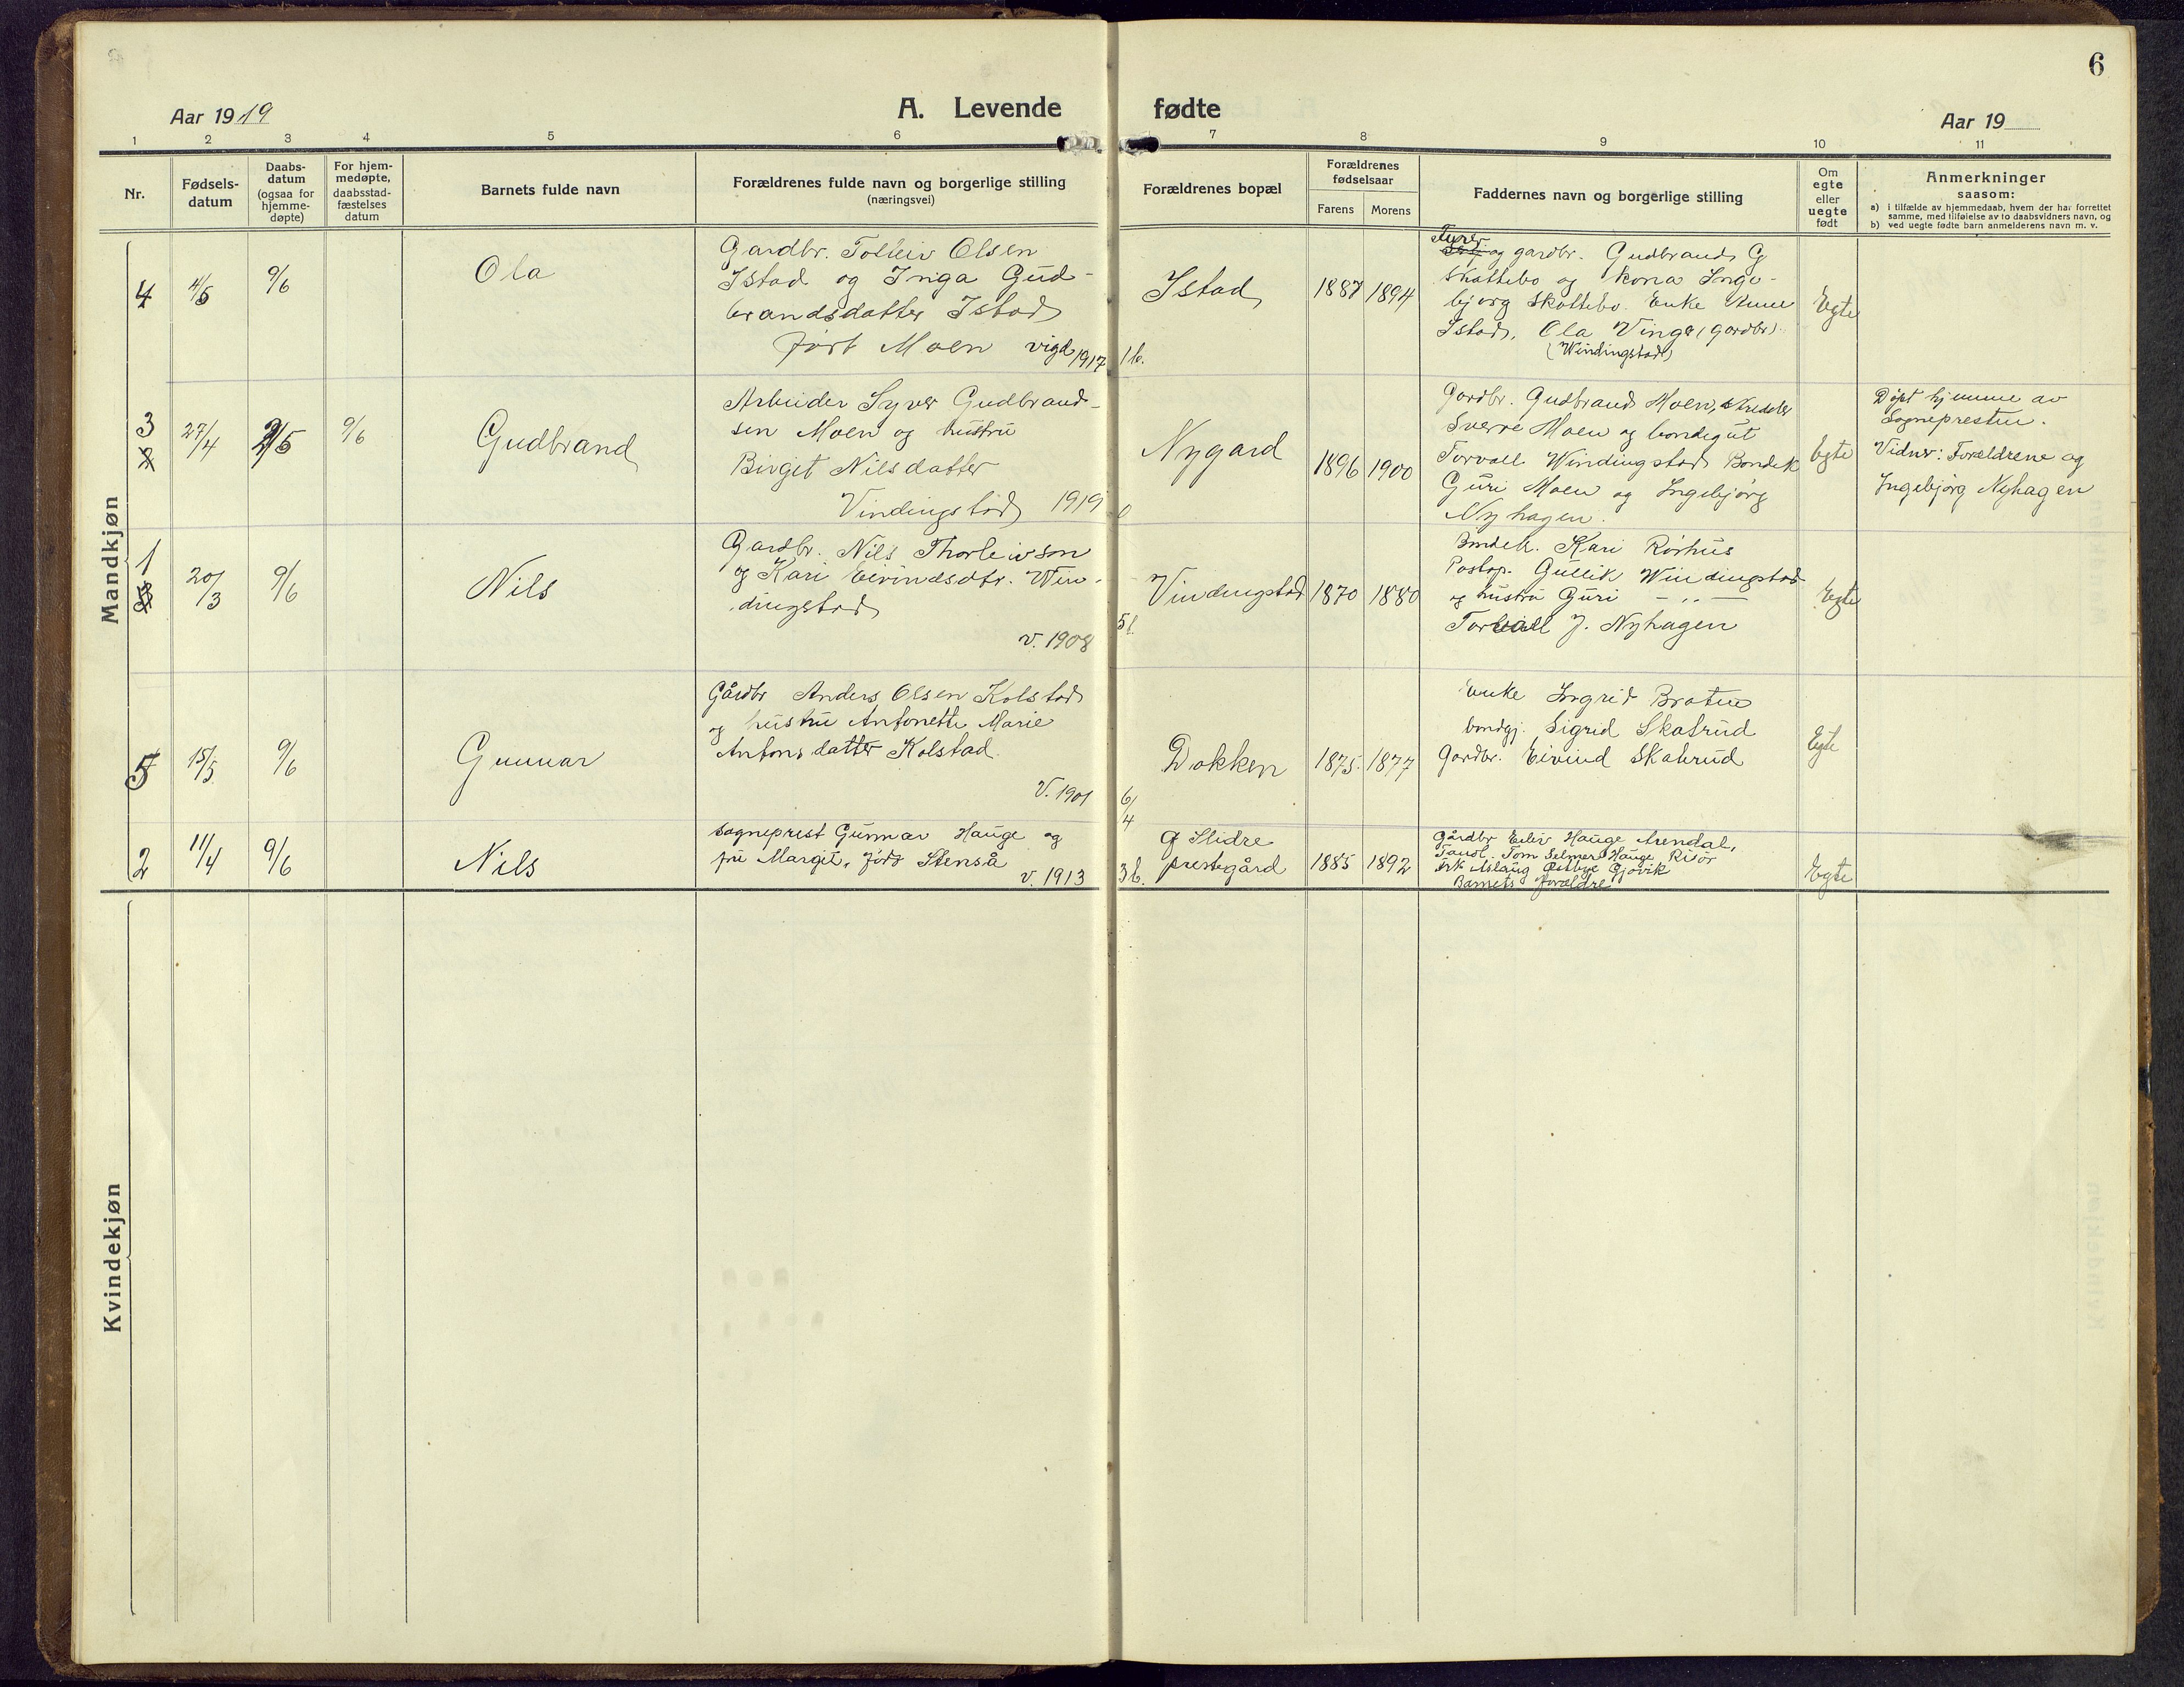 6
Aar 1919
A. Levende fødte
Aar 19
1 2 3 4 5 6 7 8 9 10 11
Nr.
Fødsels-
datum
Daabs-
datum
(ogsaa for
hjemme-
døpte)
For hjem-
medøpte,
daabsstad-
fæstelses
datum
Barnets fulde navn
Forældrenes fulde navn og borgerlige stilling
(næringsvei)
Forældrenes bopæl
Forældrenes
fødselsaar
Farens Morens
Faddernes navn og borgerlige stilling
Om
egte
eller
uegte
født
Anmerkninger
saasom:
a) i tilfælde av hjemmedaab, hvem der har forrettet
samme, med tilføielse av to daabsvidners navn, og
b) ved uegte fødte barn anmelderens navn m. v.
Mandkjøn
4
4/5
9/6
Ola
Gardbr. Tolleiv Olsen
Istad og Inga Gud-
brandsdatter Istad
født Moen vigd 1917
1 b.
Istad
1887 1894
og gardbr. Gudbrand G
Skattebo og kona Inge-
bjørg Skattebo. Enke Anne
Istad, Ola Vinge (gardbr)
(Windingstad)
Egte
3
27/4
2/5
9/6
Gudbrand
Arbeider Syver Gudbrand-
sen Moen og hustru
Birgit Nilsdatter
Vindingstad 1919
0
Nygard
1896 1900
Gardbr. Gudbrand Moen, Skredder
Sverre Moen og bondegut
Torvall Windingstad Bondek
Guri Moen og Ingebjørg
Nyhagen.
Egte
Døpt hjemme av
Sognepresten.
Vidner: Forældrene og
Ingebjørg Nyhagen
1
20/3
9/6
Nils
Gardbr. Nils Thorleivson
og Kari Eivindsdtr. Win-
dingstad
v. 1908
5 b.
Vindingstad
1870 1880
Bondek. Kari Rørhus
Postop. Gullik Windingstad
og hustru Guri — " —
Torvall J. Nyhagen
Egte
5
15/5
9/6
Gunnar
Gårdbr Anders Olsen Kolstad
og hustru Antonette Marie
Antonsdatter Kolstad.
V. 1901
6/4
Dokken
1875. 1877
Enke Ingrid Braten
bondgj. Sigrid Skatrud
Gardbr. Eivind Skatrud
Egte
2
11/4
9/6
Nils
Sogneprest Gunnar Hauge og
fru Margit, født Stenså
v. 1913
3 b.
Slidre
prestegård
1885 1892
Gårdbr Eiliv Hauge Arendal,
Tandl. Tom Selmer Hauge, Risør
Frk Aslaug Østbye Gjøvik
Barnets forældre
Egte
Kvindekjøn